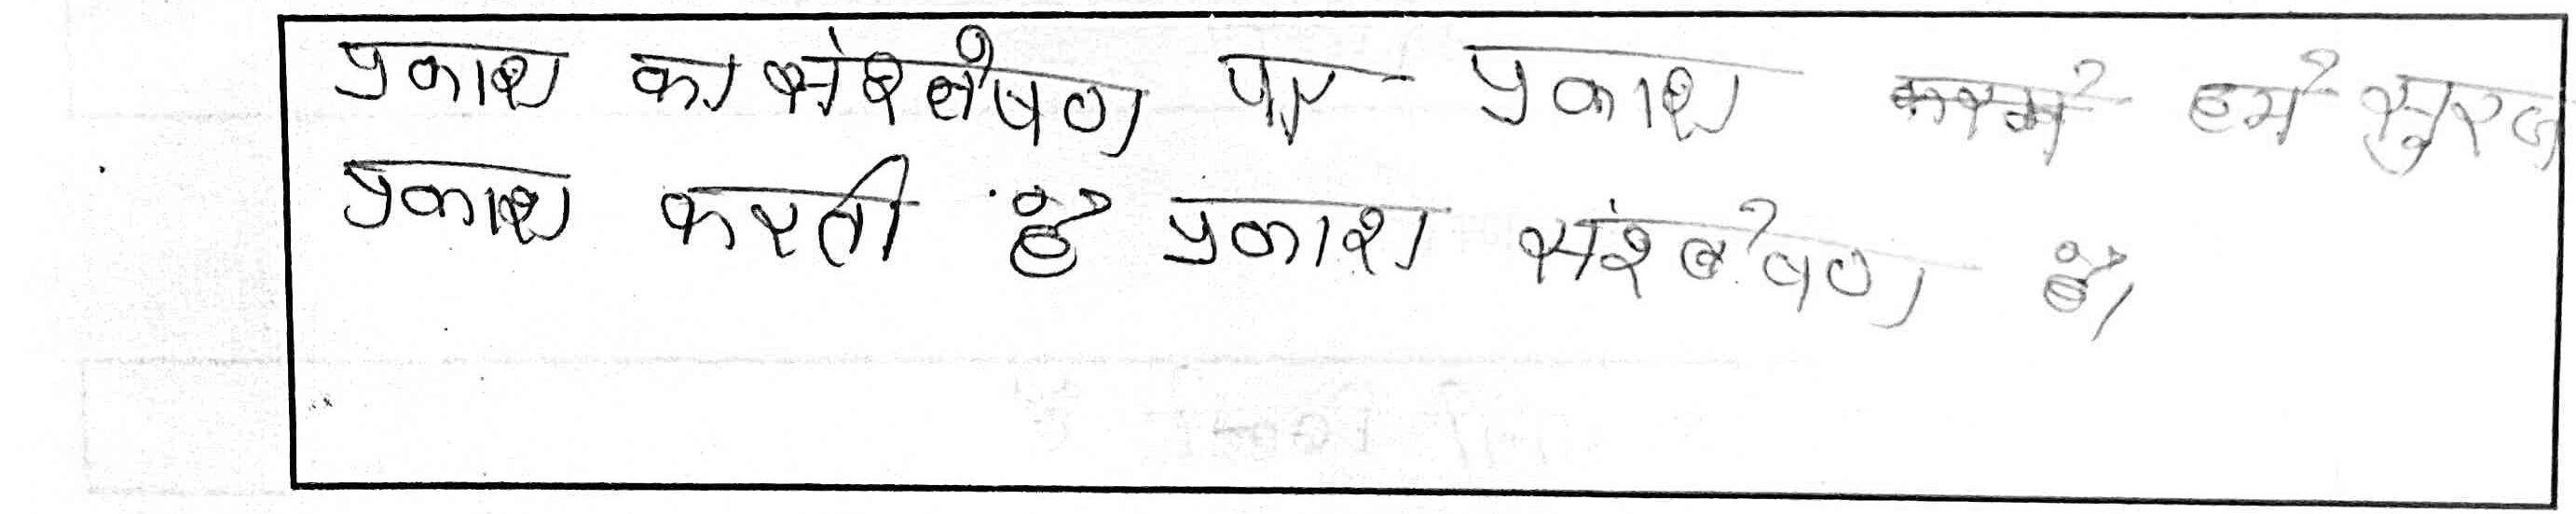 प्रकाश का संश्लेषण पर प्रकाश हमें सुरज
प्रकाश करती है प्रकाश संश्लेषण है।